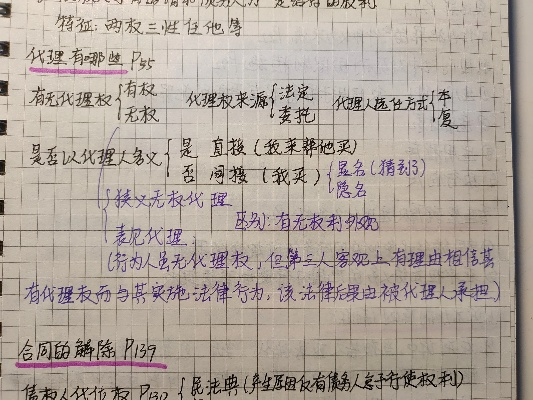 特征：两权三性任他等
代理有哪些 P55
有无代理权 { 有权 无权 代理权来源 { 法定 委托 代理人选任方式 { 本 复
是否以代理人名义 { 是 直接（我来帮他买） 否 间接（我买） { 显名（猜到了） 隐名
狭义无权代理
表见代理： 区别：有无权利外观
（行为人虽无代理权，但第三人客观上有理由相信其
有代理权而与其实施法律行为，该法律后果由被代理人承担）
合同的解除 P139
债权人代位权 { 民法典（产生原因仅有债务人怠于行使权利）